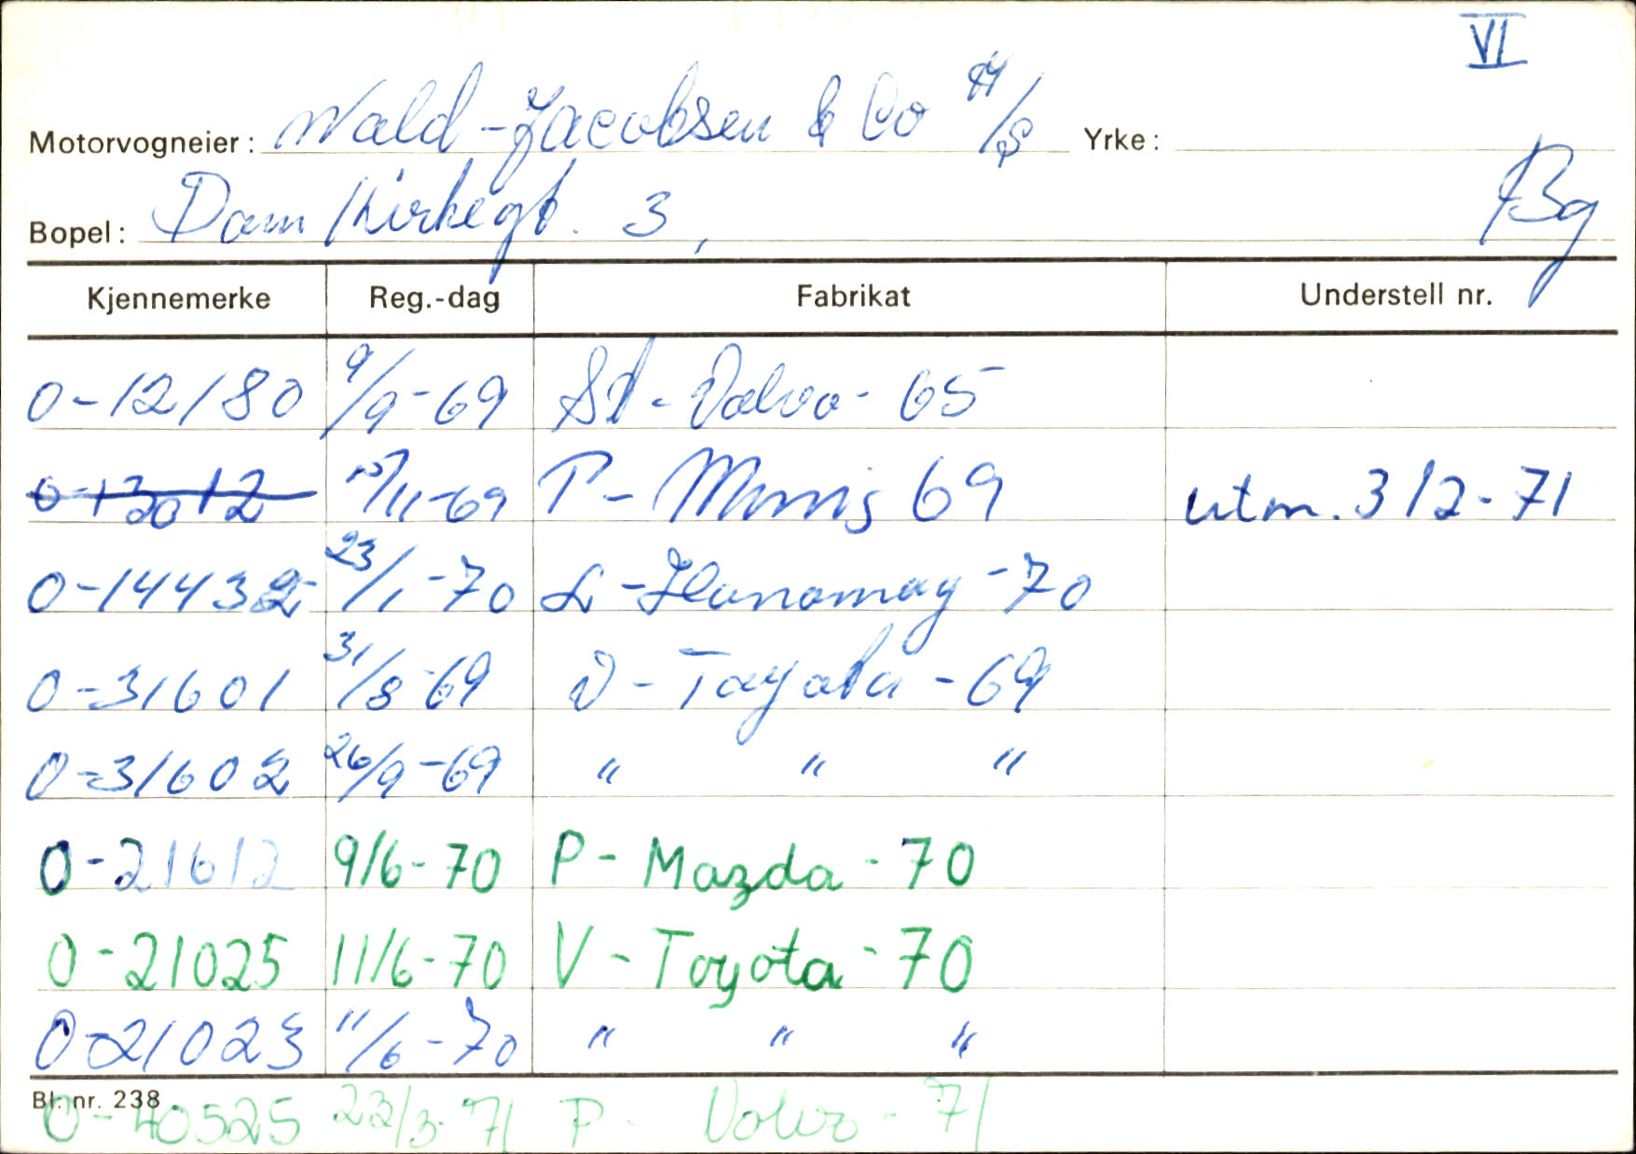 VI
Motorvogneier: Wald-Jacobsen & Co A/S Yrke:
Bopel: Dam Kirkegt. 3, Bg
Kjennemerke Reg.-dag Fabrikat Understell nr.
0-12180 9/9-69 St-Volvo-65
/11-69 P- 69 utm. 3/2-71
0-14432 23/1-70 L-Hanomag-70
0-31601 31/8-69 V-Toyota-69
0-31602 26/9-69 " " "
0-21612 9/6-70 P-Mazda-70
0-21025 11/6-70 V-Toyota-70
0-21023 11/6-70 " " "
Bl. nr. 238
0-40525 23/3-71 P- Volvo-71